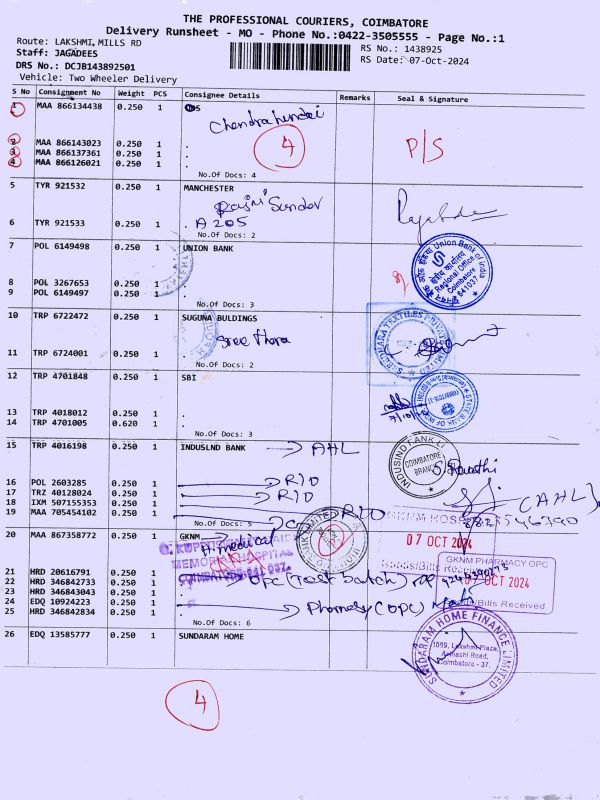 THE PROFESSIONAL COURIERS, COIMBATORE
Delivery Runsheet - MO - Phone No.:0422-3505555 - Page No.:1
Route: LAKSHMI MILLS RD
RS No.: 1438925
Staff: JAGADEES
RS Date: 07-Oct-2024
DRS No.: DCJB143892501
Vehicle: Two Wheeler Delivery
S No Consignment No Weight PCS Consignee Details Remarks Seal & Signature
1 MAA 866134438 0.250 1
2 MAA 866143023 0.250 1 .
4
P/S
3 MAA 866137361 0.250 1 .
4 MAA 866126021 0.250 1 .
No.Of Docs: 4
5 TYR 921532 0.250 1 MANCHESTER
Sundar
6 TYR 921533 0.250 1 . A 205
No.Of Docs: 2
7 POL 6149498 0.250 1 UNION BANK
Union Bank of India
Regional Office
Coimbatore
641037
8 POL 3267653 0.250 1 .
9 POL 6149497 0.250 1 .
No.Of Docs: 3
10 TRP 6722472 0.250 1 SUGUNA BULDINGS
Sree Thara
11 TRP 6724001 0.250 1 .
No.Of Docs: 2
12 TRP 4701848 0.250 1 SBI
STATE BANK OF INDIA
13 TRP 4018012 0.250 1 .
14 TRP 4701005 0.620 1 .
No.Of Docs: 3
15 TRP 4016198 0.250 1 INDUSLND BANK AHL
INDUSIND BANK LTD
COIMBATORE
BRANCH
S. Revathi
16 POL 2603285 0.250 1 .
17 TRZ 40128024 0.250 1 .
18 IXM 507155353 0.250 1 .
(AHL)
19 MAA 705454102 0.250 1 .
No.Of Docs: 5
20 MAA 867358772 0.250 1 GKNM
medical
07 OCT 2024
MEMORIAL HOSPITAL
GKNM PHARMACY OPC
07 OCT 2024
Bills Received
21 HRD 20616791 0.250 1 .
22 HRD 346842733 0.250 1 .
OPC (Test batch)
23 HRD 346843043 0.250 1 .
24 EDQ 10924223 0.250 1 .
25 HRD 346842834 0.250 1 .
Pharmacy (OPC)
No.Of Docs: 6
26 EDQ 13585777 0.250 1 SUNDARAM HOME
SUNDARAM HOME FINANCE LIMITED
1089, Lakshmi Plaza,
Avinashi Road,
Coimbatore - 37.
4